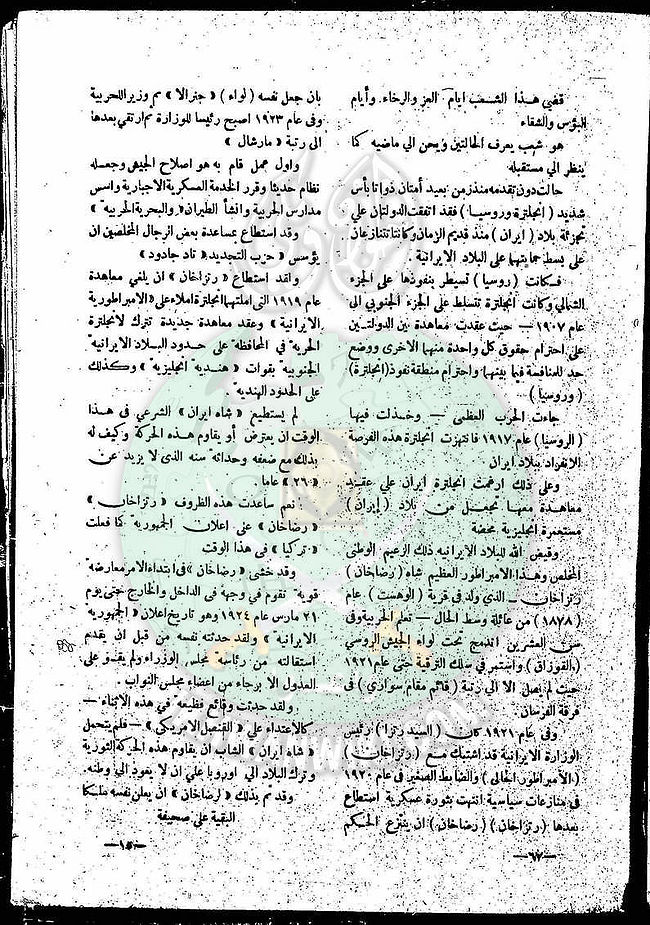 قضي هذا الشعب ايام العز والرخاء وأيام
البؤس والشقاء
هو شعب يعرف الحالتين ويحن الي ماضيه كما
ينظر الي مستقبله
حالت دون تقدمه منذ زمن بعيد أمتان ذواتا بأس
شديد ( انجلترة وروسيا ) فقد اتفقت الدولتان علي
تجزئة بلاد ( ايران ) منذ قديم الزمان وكانتا تتنازعان
علي بسط حمايتهما علي البلاد الايرانية .
فكانت ( روسيا ) تسيطر بنفوذها علي الجزء
الشمالي وكانت انجلترة تتسلط علي الجزء الجنوبي الي
عام ١٩٠٧ — حيث عقدت معاهدة بين الدولتين
علي احترام حقوق كل واحدة منهما الاخرى ووضع
حد للمنافسة فيما بينهما واحترام منطقة نفوذ (انجلترة)
( وروسيا )
جاءت الحرب العظمى — وخذلت فيها
( الروسيا ) عام ١٩١٧ فانتهزت انجلترة هذه الفرصة
الانفراد ببلاد ايران
وعلي ذلك ارغمت انجلترة ايران علي عقد
معاهدة معها تجعل من بلاد ( إيران )
مستعمرة انجليزية محضة
وقيض الله للبلاد الايرانيه ذلك الزعيم الوطني
المخلص وهذا الامبراطور العظيم شاه ( رضاخان )
رتزاخان — الذي ولد في قرية ( الوهست ) عام
( ١٨٧٨ ) من عائلة وسط الحال — تعلم الحربية وفي
سن العشرين اندمج تحت لواء الجيش الروسي
( القوزاق ) واستمر في سلك الترقية حتى عام ١٩٢١
حيث لم يصل الا الي رتبة ( قائم مقام سواري ) في
فرقة الفرسان
وفي عام ١٩٢١ كان ( السيد رتزا ) رئيس
الوزارة الايرانية قد اشتبك مع ( رتزاخان )
( الأمبراطور الحالي ) والضابط الصغير في عام ١٩٢٠
في منازعات سياسية انتهت بثورة عسكرية استطاع
بعدها ( رتزاخان ) ( رضاخان ) ان ينتزع الحكم
—٦٧—
بان جعل نفسه ( لواء ) « جنرالا » ثم وزير اللحربية
وفى عام ١٩٢٣ اصبح رئيسا للوزارة ثم ارتقي بعدها
الى رتبة « مارشال »
واول عمل قام به هو اصلاح الجيش وجعله
نظام حديثا وقرر الخدمة العسكرية الاجبارية واسس
مدارس الحربية وانشأ الطيران « والبحرية الحربيه »
وقد استطاع بمساعدة بعض الرجال المخلصين ان
يؤسس « حزب التجديد » « تاد جادود »
ولقد استطاع « رتزاخان » ان يلغي معاهدة
عام ١٩١٩ التى املتها انجلترة املاء على « الامبراطورية
الايرانية » وعقد معاهدة جديدة تترك لانجلترة
الحريه في المحافظه علي حدود البلاد الايرانيه
الجنوبيه بقوات « هنديه انجليزيه » وكذلك
علي الحدود الهنديه .
لم يستطيع « شاه ايران » الشرعي فى هذا
الوقت ان يعترض أو يقاوم هذه الحركة وكيف له
بذلك مع ضعفه وحداثه سنه الذى لا يزيد عن
« ٢٦ » عاما .
نعم ساعدت هذه الظروف « رتزاخان »
« رضاخان » على اعلان الجمهوريه كما فعلت
« تركيا » فى هذا الوقت
وقد خشى « رضاخان » فى ابتداء الامر معارضه
قوية تقوم فى وجهه فى الداخل والخارج حتى يوم
٢١ مارس عام ١٩٢٤ وهو تاريخ اعلان « الجمهوريه
الايرانيه » ولقد حدثته نفسه من قبل ان يقدم
استقالته من رئاسة مجلس الوزراء ولم يقدو على
العدول الا برجاء من اعضاء مجلس النواب .
ولقد حدثت وقائع فظيعه فى هذه الاثناء —
كالاعتداء علي « القنصل الامريكى » — فلم يتحمل
« شاه ايران » الشاب ان يقاوم هذه الحركة الثورية
وترك البلاد الي اوروبا علي ان لا يعود الي وطنه .
وقد تم بذلك « لرضاخان » ان يعلن نفسه ملكا
البقية على صحيفة
—١٥—